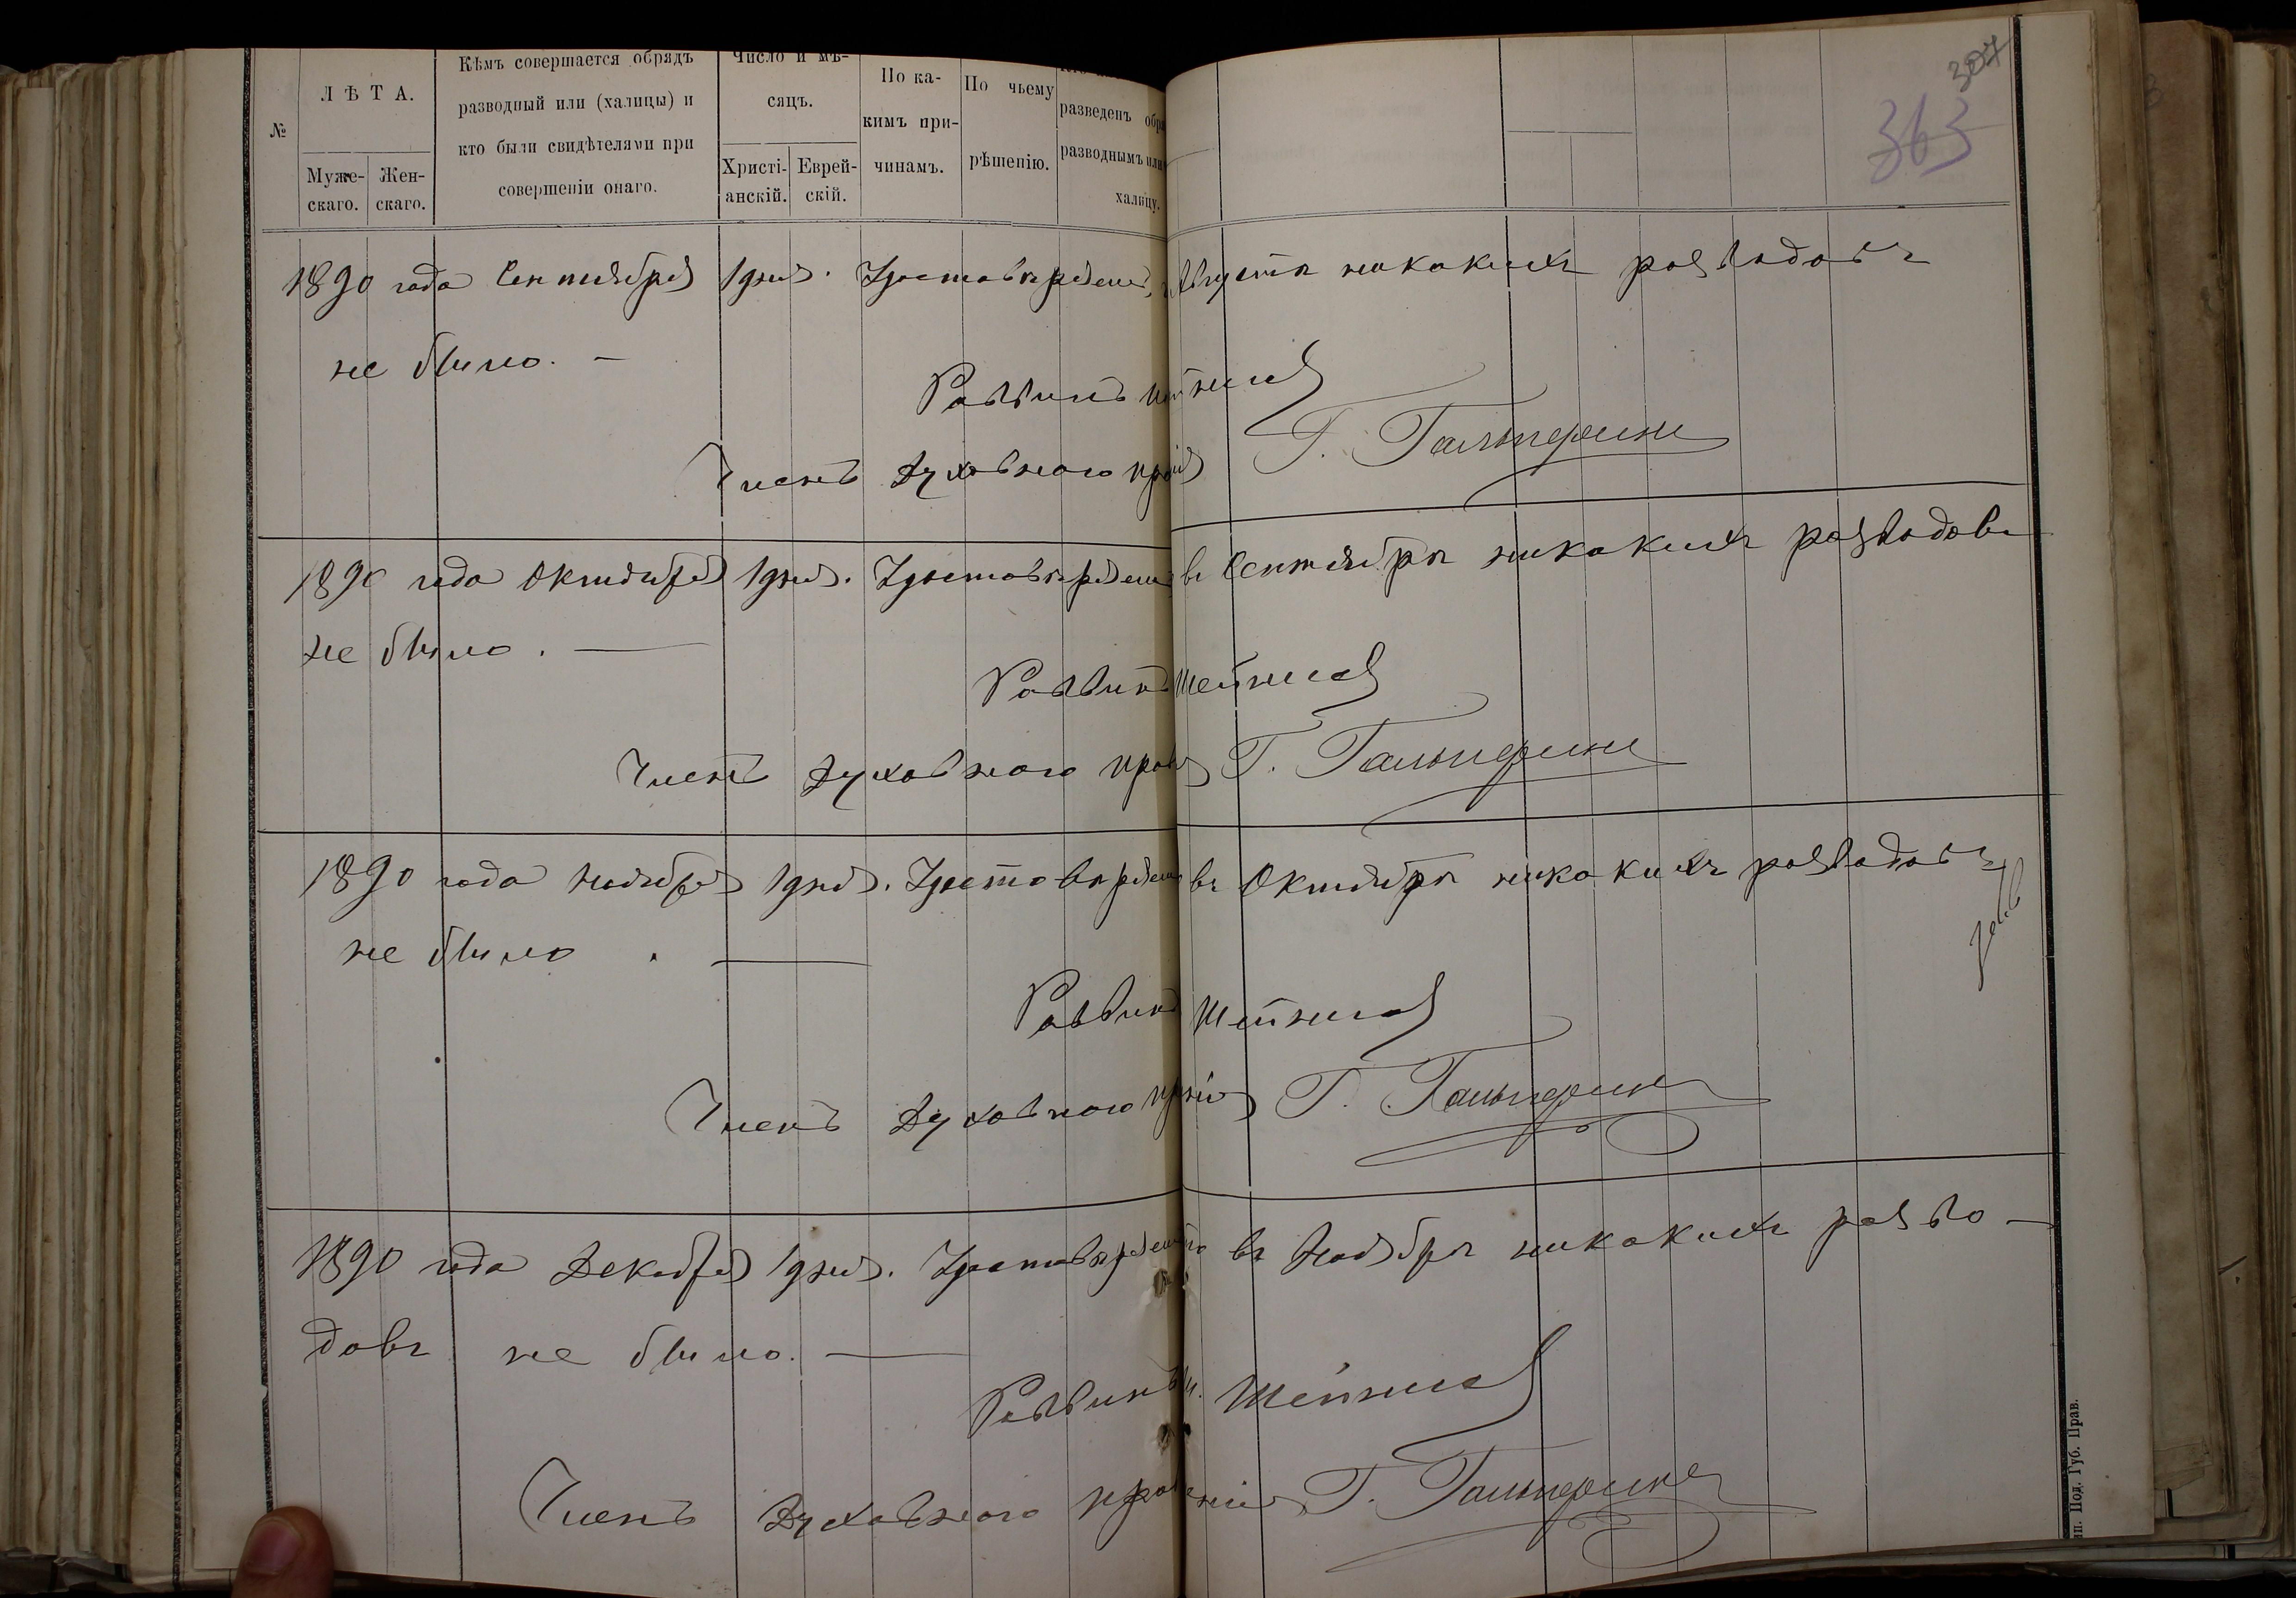 304
363
№
ЛѢТА.
Муже-
скаго.
Жен-
скаго.
Кѣмъ совершается обрядъ
разводный или (халицы) и
кто были свидѣтелями при
совершеніи онаго.
Число и мѣ-
сяцъ.
Христі-
анскій.
Еврей-
скій.
По ка-
кимъ при-
чинамъ.
По чьему
рѣшенію.
разведенъ
разводнымъ или
халицу.
1890 года Сентября 1 дня. Удостовѣряемъ, Августѣ никакихъ разводовъ
не было. —
Раввинъ Шейнисъ
Членъ Духовнаго Г. Гальперинъ
1890 года Октября 1 дня. Удостовѣряемъ въ Сентябрѣ никакихъ разводовъ
не было. —
Раввинъ Шейнисъ
Членъ Духовнаго Г. Гальперинъ
1890 года Ноября 1 дня. Удостовѣряемъ въ Октябрѣ никакихъ разводовъ
не было. —
Раввинъ Шейнисъ
Членъ Духовнаго Г. Гальперинъ
1890 года Декабря 1 дня. Удостовѣряемъ въ Ноябрѣ никакихъ разво-
довъ не было. —
Раввинъ Шейнисъ
Членъ Духовнаго Г. Гальперинъ
Под. Губ. Прав.